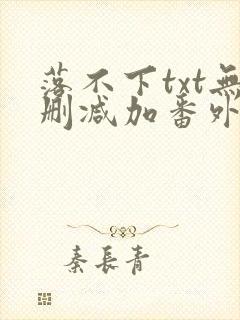 落不下txt無
删减加番外
秦長青